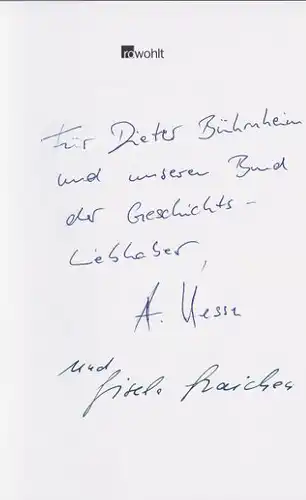 rowohlt
Für Dieter Bührnheim
und unseren Bund
der Geschichts-
Liebhaber,
A. Hesse
und
Gisela Graichen